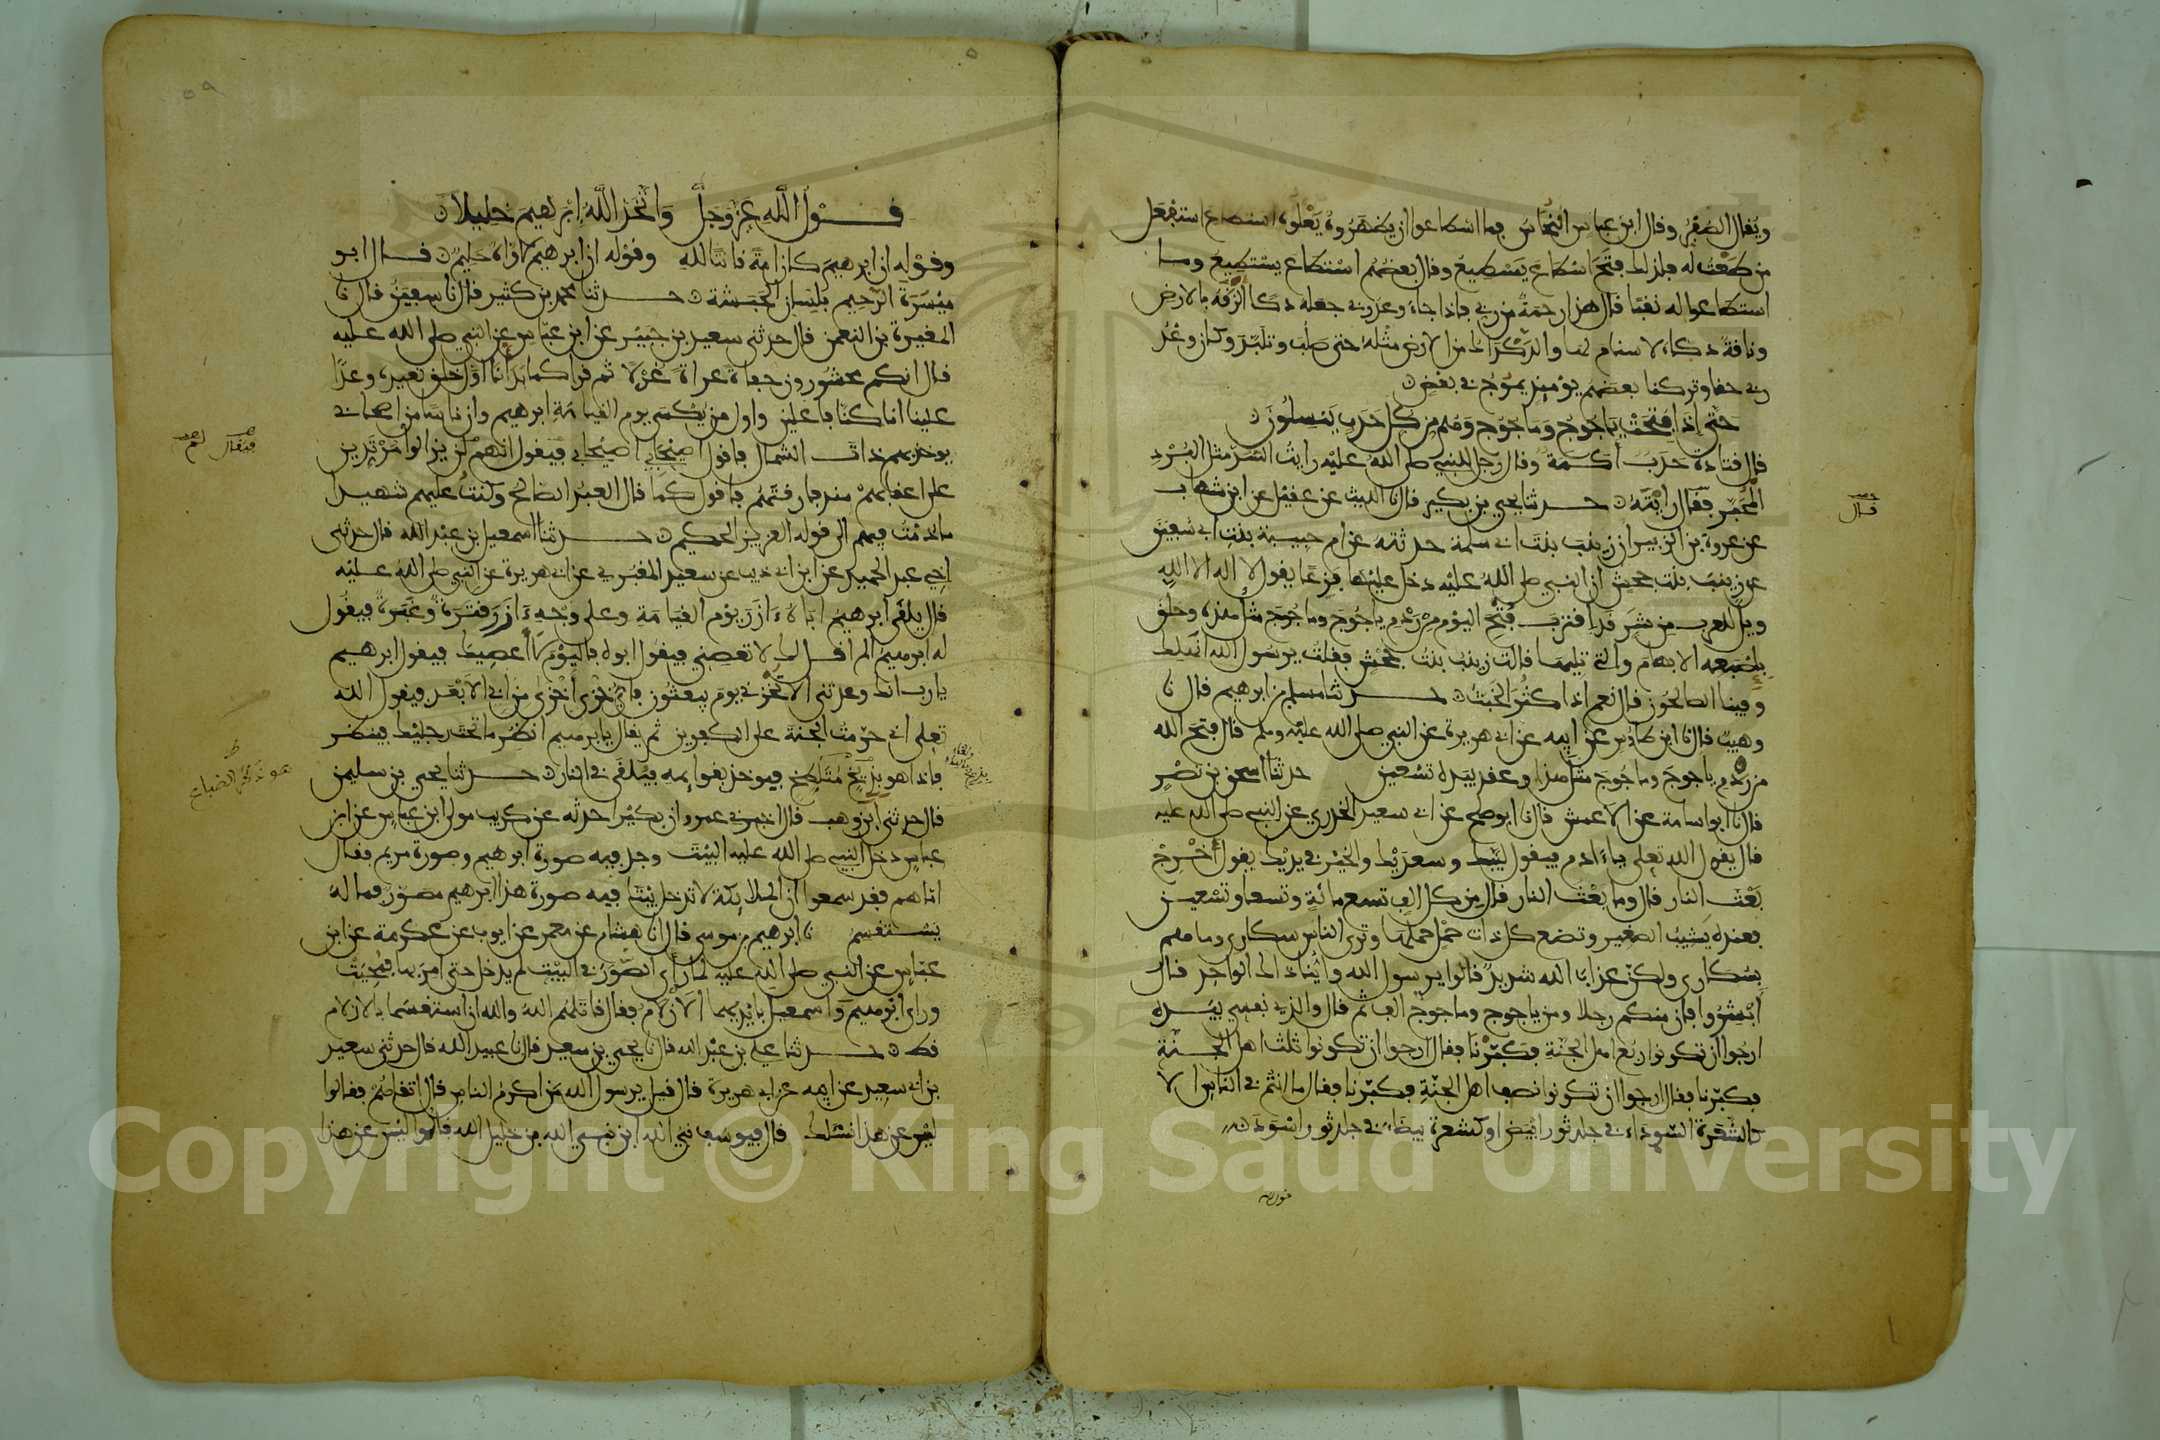 ويقال الصفر وقال ابن عباس النحاس فما اسطاعوا ان يظهروه يعلوه استطاع استفعل
من طعت له فلذلك فتح اسطاع يسطيع وقال بعضهم استطاع يستطيع وما
استطاعوا له نقبا قال هذا رحمة من ربي فاذا جاء وعد ربي جعله دكا الزقه بالارض
وناقة دكاء لا سنام لها والدكداك من الارض مثله حتى صلب وتلبد وكان وعد
ربي حقا وتركنا بعضهم يومئذ يموج في بعض
حتى اذا فتحت ياجوج وماجوج وهم من كل حدب ينسلون
قال قتادة حدب اكمة وقال رجل للنبي صلى الله عليه رايت السد مثل البرد
المحبر فقال رايته حدثنا يحيى بن بكير قال نا الليث عن عقيل عن ابن شهاب
قال
عن عروة بن الزبير ان زينب بنت ابي سلمة حدثته عن ام حبيبة بنت ابي سفين
عن زينب بنت جحش ان النبي صلى الله عليه دخل عليها فزعا يقول لا إله الا الله
ويل للعرب من شر قد اقترب فتح اليوم من ردم ياجوج وماجوج مثل هذه وحلق
بإصبعه الابهام والتي تليها قالت زينب بنت جحش فقلت يرسول الله انهلك
وفينا الصالحون قال نعم اذا كثر الخبث حدثنا مسلم بن ابرهيم قال نا
وهيب قال نا ابن طاوس عن ابيه عن ابي هريرة عن النبي صلى الله عليه وسلم قال فتح الله
من ردم ياجوج وماجوج مثل هذا وعقد بيده تسعين حدثنا اسحق بن نصر
قال نا ابو اسامة عن الاعمش قال نا ابو صلح عن ابي سعيد الخدري عن النبي صلى الله عليه
قال يقول الله تعلى ياءادم فيقول لبيك وسعديك والخير في يديك يقول أخرج
بعث النار قال وما بعث النار قال من كل الف تسع مائة وتسعا وتسعين
فعنده يشيب الصغير وتضع كل ذات حمل حملها وترى الناس سكارى وما هم
بسكارى ولكن عذاب الله شديد قالوا يرسول الله وأينا ذاك الواحد قال
أبشروا فان منكم رجلا ومن ياجوج وماجوج الف ثم قال والذي نفسي بيده
ارجوا ان تكونوا ربع اهل الجنة فكبرنا فقال ارجوا ان تكونوا ثلث اهل الجنة
فكبرنا فقال ارجوا ان تكونوا نصف اهل الجنة فكبرنا فقال ما انتم في الناس الا
كالشعرة السوداء في جلد ثور ابيض او كشعرة بيضاء في جلد ثور اسود
قول الله
قول الله عز وجل واتخذ الله ابرهيم خليلا
وقوله ان ابرهيم كان امة قانتا لله وقوله ان ابرهيم لاواه حليم قال ابو
ميسرة الرحيم بلسان الحبشة حدثنا محمد بن كثير قال نا سفين قال نا
المغيرة بن النعمن قال حدثني سعيد بن جبير عن ابن عباس عن النبي صلى الله عليه
قال انكم محشورون حفاة عراة غرلا ثم قرا كما بدأنا اول خلق نعيده وعدا
علينا انا كنا فاعلين واول من يكسى يوم القيامة ابرهيم وان ناسا من اصحابي
يوخذ بهم ذات الشمال فاقول اصحابي اصحابي فيقول انهم لن يزالوا مرتدين
فيقال
على اعقابهم منذ فارقتهم فاقول كما قال العبد الصالح وكنت عليهم شهيدا
ما دمت فيهم الى قوله العزيز الحكيم حدثنا اسمعيل بن عبد الله قال حدثني
اخي عبد الحميد عن ابن ابي ذيب عن سعيد المقبري عن ابي هريرة عن النبي صلى الله عليه
قال يلقى ابرهيم اباه ءازر يوم القيامة وعلى وجه ءازر قترة وغبرة فيقول
له ابرهيم الم اقل لك لا تعصني فيقول ابوه فاليوم لا أعصيك فيقول ابرهيم
يا رب انك وعدتني الا تخزني يوم يبعثون فاي خزي أخزى من ابي الابعد فيقول الله
تعلى اني حرمت الجنة على الكفرين ثم يقال يا ابرهيم انظر ما تحت رجليك فينظر
فاذا هو بذيخ متلطخ فيوخذ بقوايمه فيلقى في النار حدثنا يحيى بن سليمن
هو ذكر الضباع
قال حدثني ابن وهب قال اخبرني عمرو ان بكيرا حدثه عن كريب مولى ابن عباس عن ابن
عباس دخل النبي صلى الله عليه البيت وجد فيه صورة ابرهيم وصورة مريم فقال
اما هم فقد سمعوا ان الملايكة لا تدخل بيتا فيه صورة هذا ابرهيم مصور فما له
يستقسم نا ابرهيم بن موسى قال انا هشام عن معمر عن ايوب عن عكرمة عن ابن
عباس عن النبي صلى الله عليه لما رأى الصور في البيت لم يدخل حتى امر بها فمحيت
وراى ابرهيم واسمعيل بايديهما الازلام فقال قاتلهم الله والله ان استقسما بالازلام
قط حدثنا علي بن عبد الله قال نا يحيى بن سعيد قال نا عبيد الله قال حدثني سعيد
بن ابي سعيد عن ابيه عن ابي هريرة قال قيل يرسول الله من اكرم الناس قال اتقاهم فقالوا
ليس عن هذا نسئلك قال فيوسف نبي الله ابن نبي الله بن خليل الله قالوا ليس عن هذا
Copyright © King Saud University